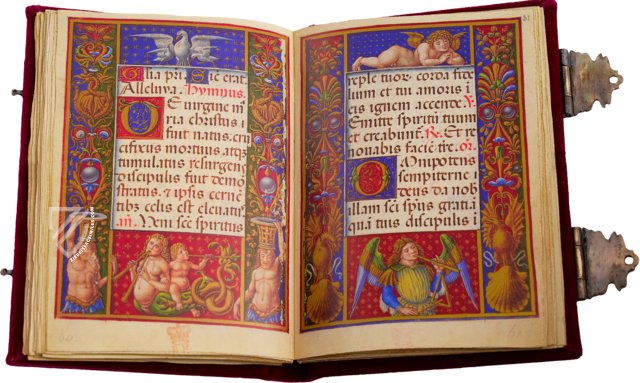 Glia pri. Sic erat
Alleluya. Hympus.
De uirgine m
ria christus i
fuit natus. cru
cifixus mortuus. atqz
tumulatus resurgens
discipulis fuit demō
stratus. & ipsis cernē
tibz celis est eleuatus.
añ. Veni scē spiritus
31
reple tuor. corda fide
lium et tui amoris i
eis ignem accende. V.
Emitte spiritū tuum
et creabunt. R. Et re
nouabis faciē tre. or.
Omnipotens
sempiterne
deus da nob
illam scī spus gratiā
quā tuis discipulis i